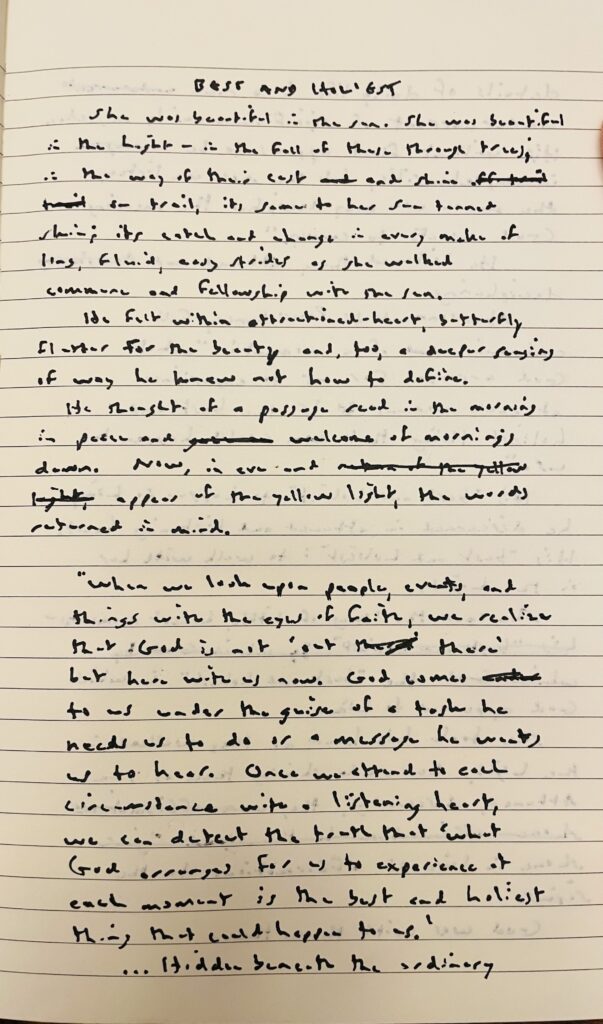 BEST AND HOLIEST
She was beautiful in the sun. She was beautiful
in the light - in the fall of these through trees;
in the way of their cast and and shine off trail
trail on trail, its same to her sun tanned
skin; its catch and change in every make of
long, fluid, easy strides as she walked
commune and fellowship with the sun.
He felt within attractioned-heart, butterfly
flutter for the beauty and, too, a deeper
of way he knew not how to define.
He thought of a passage read in the morning
in peace and welcome of mornings
dawn. Now, in eve and return of the yellow
light, appear of the yellow light, the words
returned in mind.
"When we look upon people, events, and
things with the eyes of faith, we realize
that God is not 'out there'
but here with us now. God comes
to us under the guise of a task he
needs us to do or a message he wants
us to hear. Once we attend to each
circumstance with a listening heart,
we can detect the truth that 'what
God arranges for us to experience at
each moment is the best and holiest
thing that could happen to us.'
... Hidden beneath the ordinary